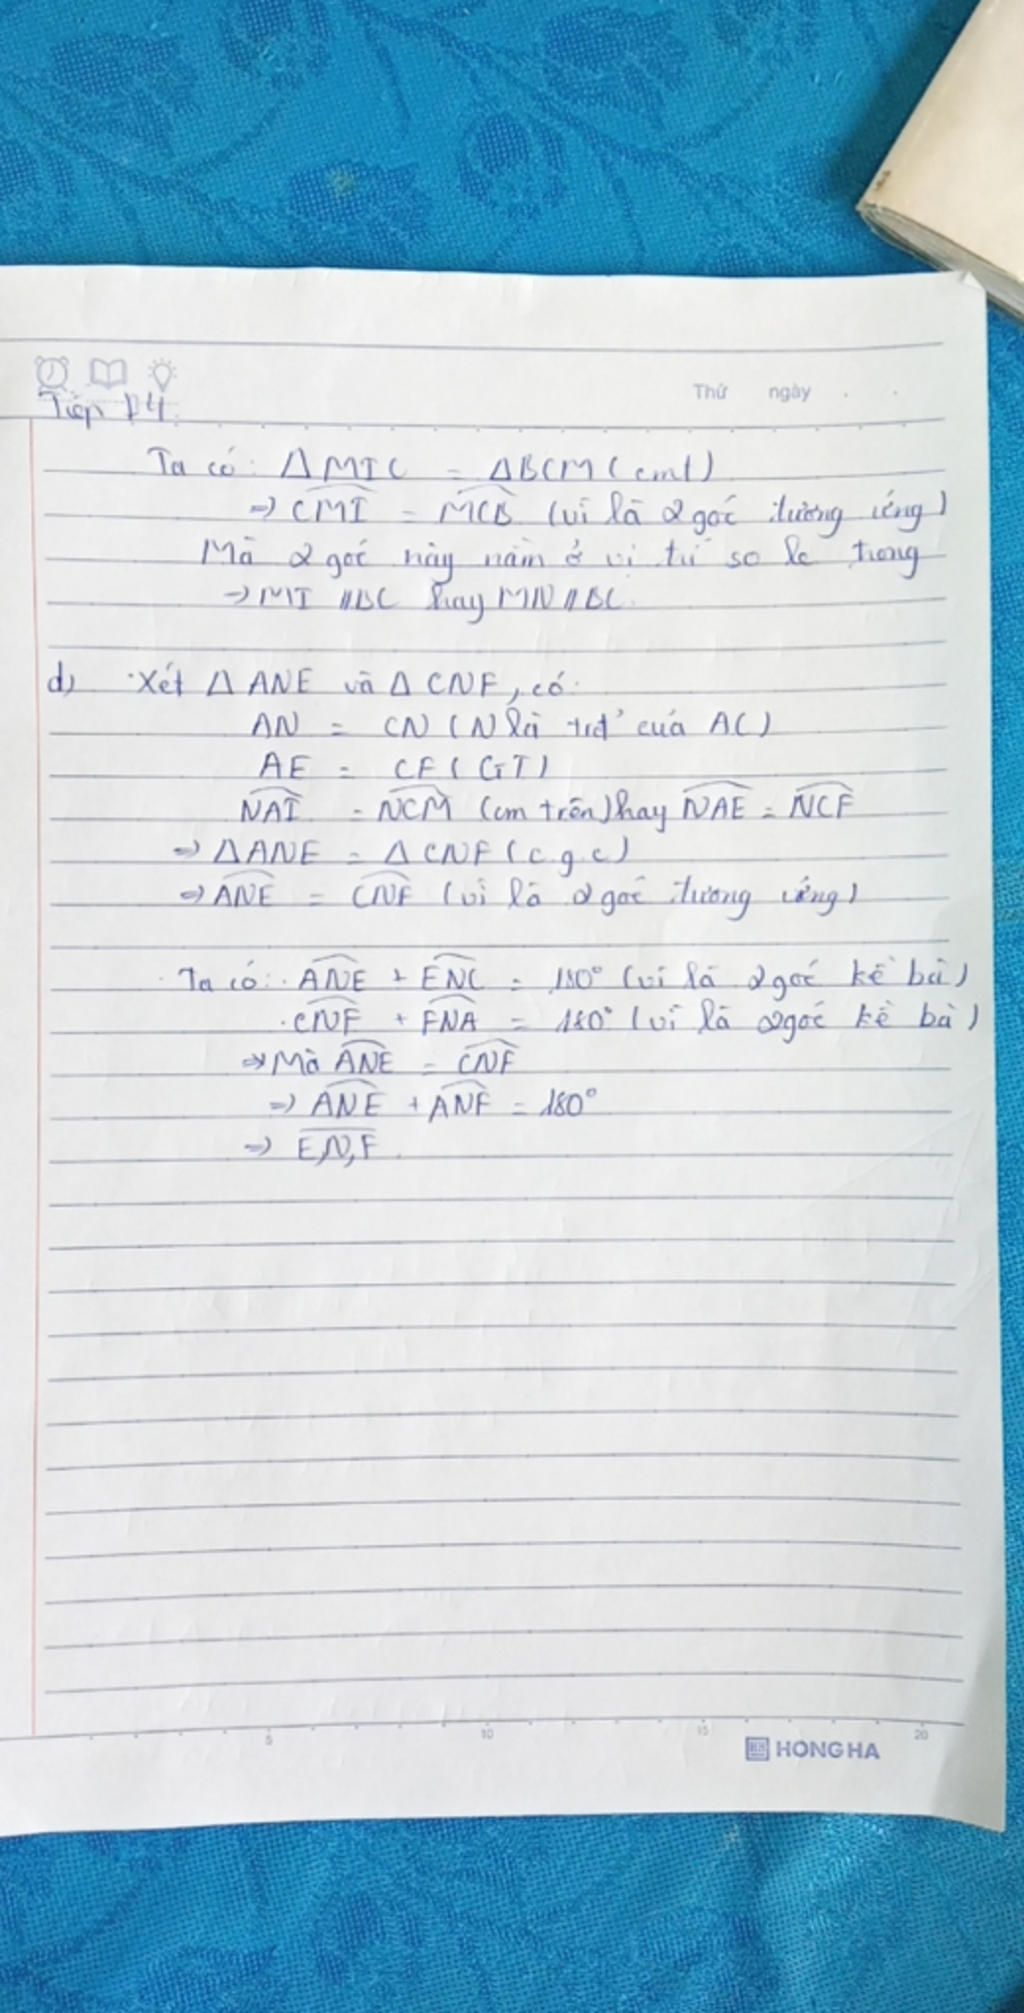 Thứ ngày
Tiếp B4:
Ta có: ΔMIC = ΔBCM (cmt)
⇒ CMI = MCB (vì là 2 góc tương ứng)
Mà 2 góc này nằm ở vị trí so le trong
→ MI // BC hay MN // BC.
d) Xét Δ ANE và Δ CNF, có:
AN = CN (N là trđ của AC)
AE = CF (GT)
NAI = NCM (cm trên) hay NAE = NCF
⇒ ΔANE = ΔCNF (c.g.c)
⇒ ANE = CNF (vì là 2 góc tương ứng)
Ta có: ANE + ENC = 180° (vì là 2 góc kề bù)
CNF + FNA = 180° (vì là 2 góc kề bù)
⇒ Mà ANE = CNF
⇒ ANE + ANF = 180°
⇒ E,N,F
5 10 15 20
HONG HA